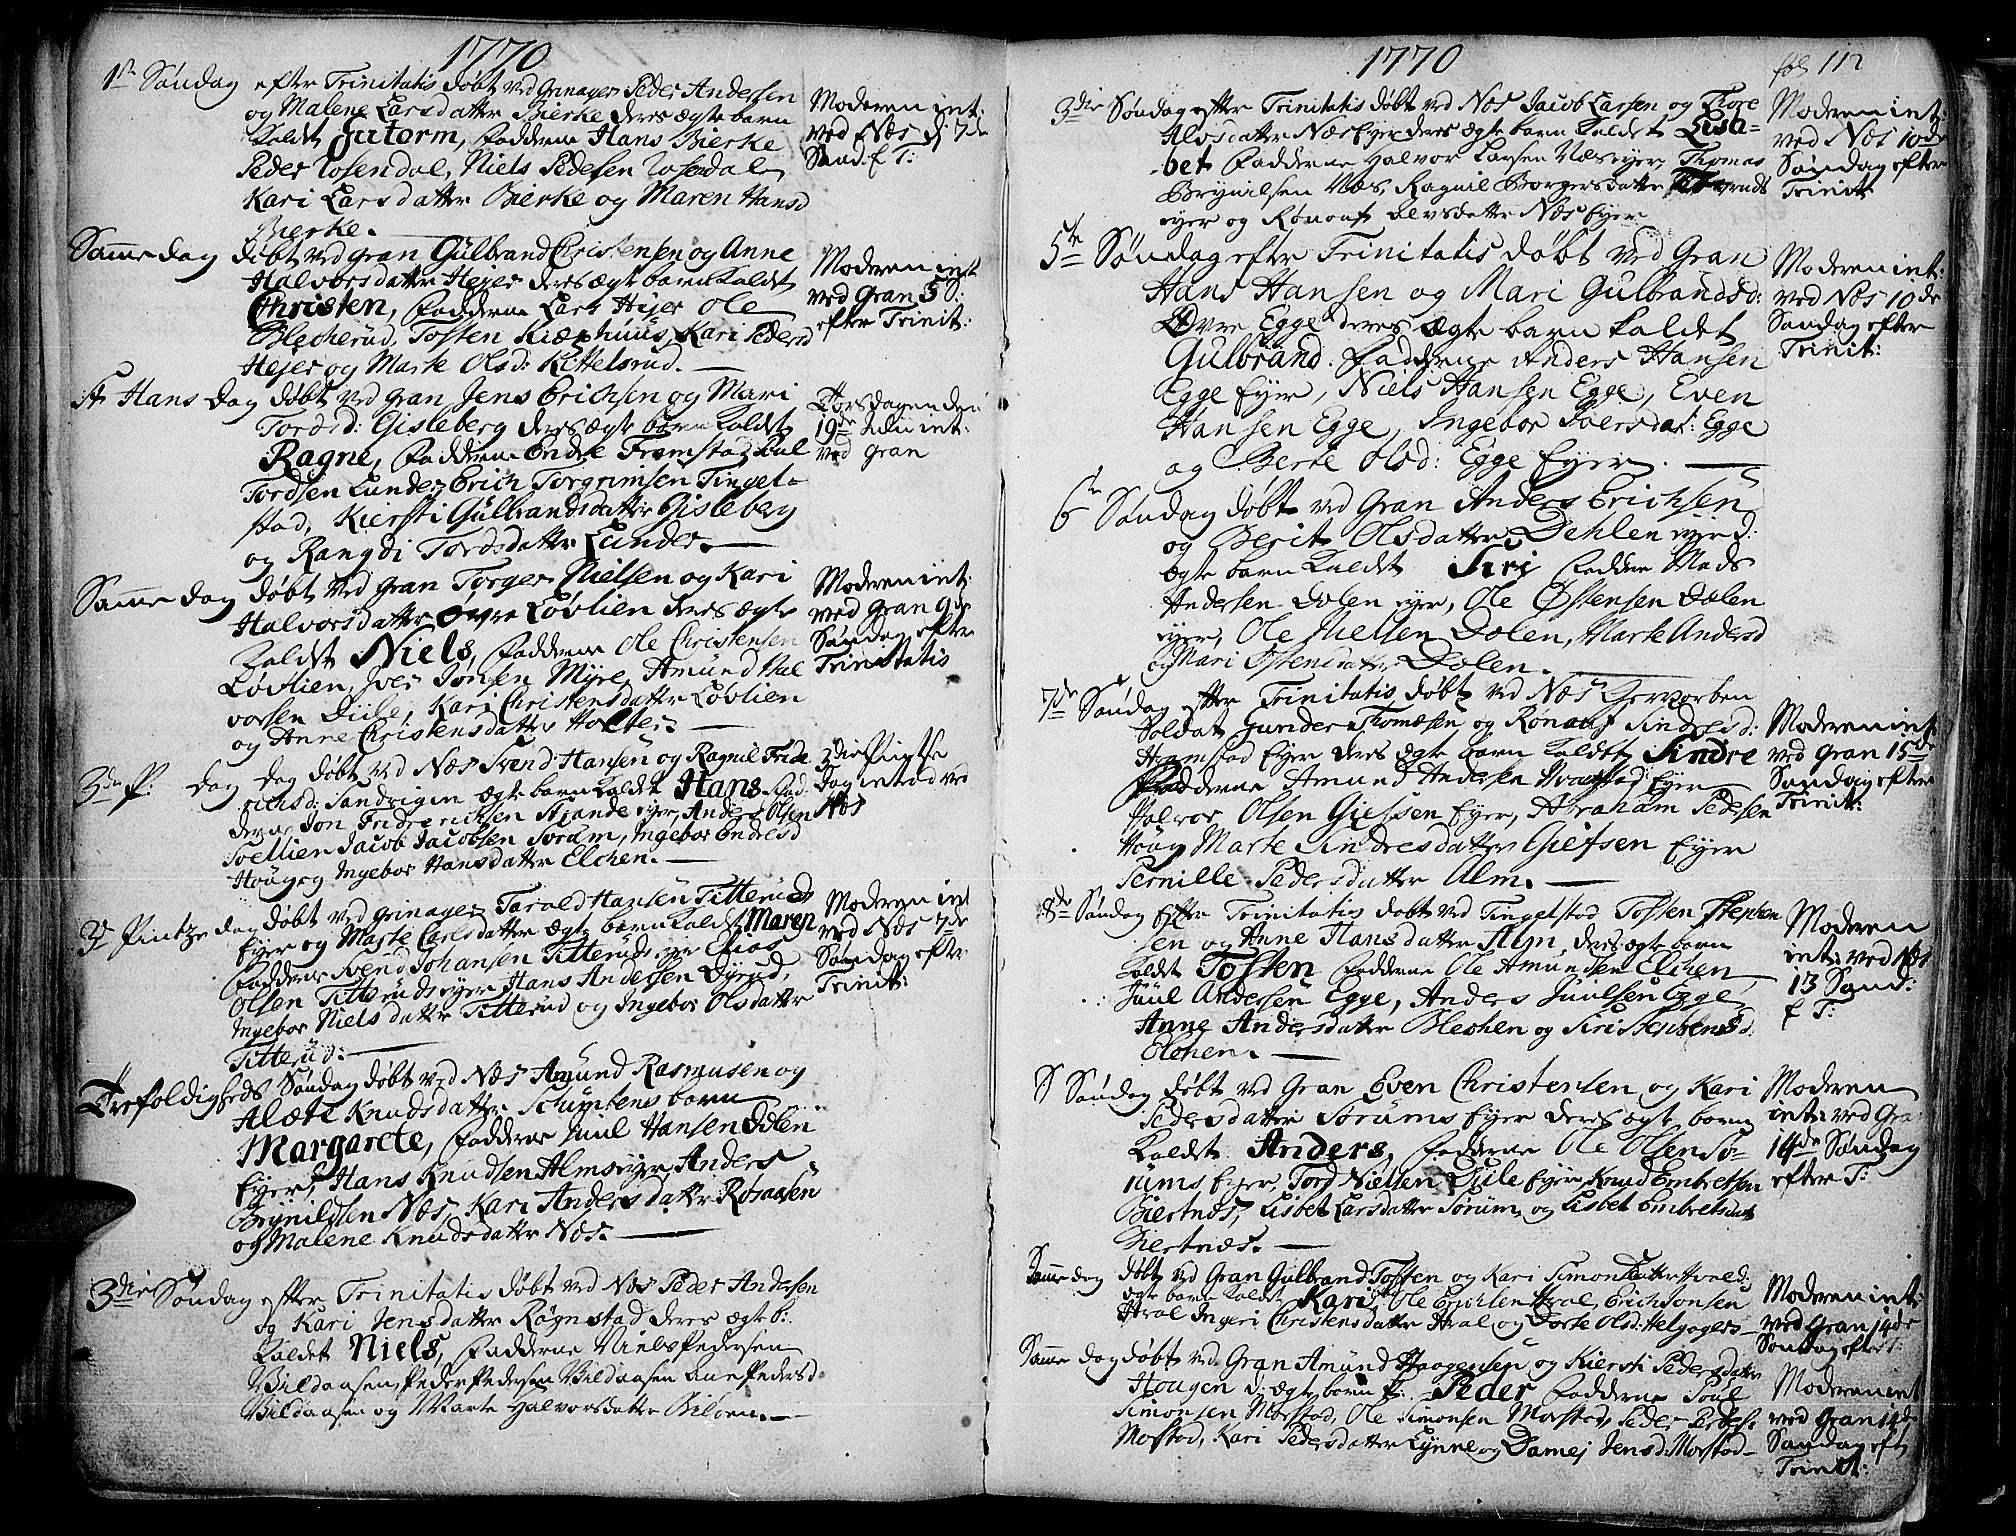 1770
1ste Søndag efter Trinitatis døbt ved Grinager Peder Andersen
og Malene Larsdatter Bierke deres ægte barn
kaldt Gutorm, Fadderne Hans Bierke
Peder Rosendal, Niels Pedersen Rosendal
Kari Larsdatter Bierke og Maren Hansd
Bierke.
Moderen int:
ved Næs d: 7de
Sønd. e T:
Samme dag døbt ved Gran Gulbrand Christensen og Anne
Halvorsdatter Hejer deres ægte barn kaldet
Christen, Fadderne Lars Hejer Ole
Blecherud, Tosten Kiæghuus, Kari Pedersd
Hejer og Marte Olsd: Kittelsrud.
Moderen int
ved Gran 5 S:
efter Trinit:
St Hans Dag døbt ved Gran Jens Erichsen og Mari
Tordsd: Gisleberg deres ægte barn kaldet
Ragne, Fadderne Endre Framstad, Pål
Tordsen Lunder, Erich Torgrimsen Tingel-
stad, Kiersti Gulbrandsdatter Gisleberg
og Rangdi Tordsdatter Lunder.
Torsdagen den
19de int:
ved Gran
Samme dag døbt ved Gran Torger Nielsen og Kari
Halvorsdatter Øvre Løvlien deres ægte
kaldet Niels, Fadderne Ole Christensen
Løvlien, Iver Jonsen Myre, Amund Hal
vorsen Diile, Kari Christensdatter Løvlien
og Anne Christensdatter Holter.
Moderen int:
ved Gran 9de
Søndag efter
Trinitatis
3die P: dag døbt ved Næs Svend Hansen og Ragnil Fride
richsd: Sandvigen ægte barn kaldet Hans Fad-
derne Jon Fridrerichsen Stjande eyer, Anders Olsen
Soellien Jacob Jacobsen Sorum, Ingebor Endresd
Houg og Ingebor Hansdatter Elchen.
3die Pintse
dag intred ved
Næs
3die Pintze dag døbt ved Grinager Tarald Hansen Titterud
Eyer og Marte Carlsdatter ægte barn kaldet Maren
Fadderne Svend Johansen Titteruds eye Elias
Olsen Titteruds eyer Hans Andersen Dyrud,
Ingebor Nielsdatter Titterud og Ingebor Olsdatter
Titterud.
Moderen int
ved Næs 7de
Søndag eft:
Trinit:
Trefoldigheds Søndag døbt ved Næs Amund Rasmusen og
Alæte Knudsdatter Schuttens barn
Margarete, Fadderne Juul Hansen Dølen
Eyer, Hans Knudsen Alms eyer Anders
Brynildsen Næs, Kari Andersdatter Røsaasen
og Malene Knudsdatter Næs.
3die Søndag efter Trinitatis døbt ved Næs Peder Andersen
og Kari Jensdatter Røgnstad deres ægte b:
kaldet Niels, Fadderne Niels Pedersen
Bildaasen, Peder Pedersen Bildaasen Ane Pedersd
Bildaasen og Marte Halvorsdatter Bilden.
1770
fol 112
3die Søndag efter Trinitatis døbt ved Næs Jacob Larsen og Thore
Alosdatter Næs Eyer deres ægte barn kaldet Lisa-
bet Fadderne Halvor Larsen Næs eyer, Thomas
Brynilsen Næs, Ragnil Borgersdatter
eyer og Rønoaf Olevsdatter Næs Eyer
Moderen int:
ved Næs 10de
Søndag efter
Trinit:
5te Søndag efter Trinitatis døbt ved Gran
Hans Hansen og Mari Gulbrandsd:
Øvre Egge deres ægte barn kaldet
Gulbrand. Fadderne Anders Hansen
Egge Eyer, Niels Hansen Egge, Even
Hansen Egge, Ingebor Iversdat: Egge
og Berte Olsd: Egge Eyer.
Moderen int:
ved Næs 10de
Søndag efter
Trinit:
6te Søndag døbt ved Gran Anders Erichsen
og Berit Olsdatter Dehlen eyed:
ægte barn kaldet Siri Faddere Mads
Andersen Dølen eyer, Ole Østensen Dølen
eyer, Ole Nielsen Dølen, Marte Andersd
og Mari Østensdatter Dølen.
7de Søndag efter Trinitatis døbt ved Næs Gevorben
Soldat Gunder Thomæsen og Ronauf Sindresd:
Hramstad Eyer deres ægte barn kaldet Sindre
Fadderne Amund Andersen Hramstad Eyer
Halvor Olsen Giefsen Eyer, Abraham Pedersen
Houg Marte Sindresdatter Giefsen Eyer
Pernille Pedersdatter Alm.
Moderen int
ved Gran 15de
Søndag efter
Trinit:
8de Søndag Efter Trinitatis døbt ved Tingelstad Tosten Stephen
sen og Anne Hansdatter Alm deres ægte barn
kaldet Tosten Fadderne Ole Amundsen Elchen
Juul Andersen Egge, Anders Juulsen Egge
Anne Andersdatter Blechen og Siri Stephensd
Elchen.
Moderen
int: ved Næs
13 Sønd:
e T:
S Søndag døbt ved Gran Even Christensen og Kari
Pedersdatter Sørums Eyer deres ægte barn
kaldet Anders, Fadderne Ole Olsen Sø-
rums Eyer, Tord Nielsen Diile Eyer Knud Embretsen
Biertnæs, Lisbet Larsdatter Sørum, og Lisbet Embretsdat
Biertnæs.
Moderen
int: ved Gra
14de Søndag
efter T:
Samme dag døbt ved Gran Gulbrand Tosten og Kari Simonsdatter Hvalsd:
ægte barn kaldet Kari, Ole Erichsen Hval, Erich Jonsen
Hval Ingeri Christensdatter Hval og Dorte Olsd: Helgagers
Moderen int:
ved Gran 14de
Søndag efter T:
Samme dag døbt ved Gran Amund Haagensen og Kiersti Pedersdatter
Hougen d: ægte barn k: Peder Fadderne Poul
Simonsen Morstad, Ole Simonsen Morstad, Peder Peders:
Morstad, Kari Pedersdatter Lynne og Damej Jensd: Morstad
Moderen int
ved Gran 14de
Søndag eft
Trinit: